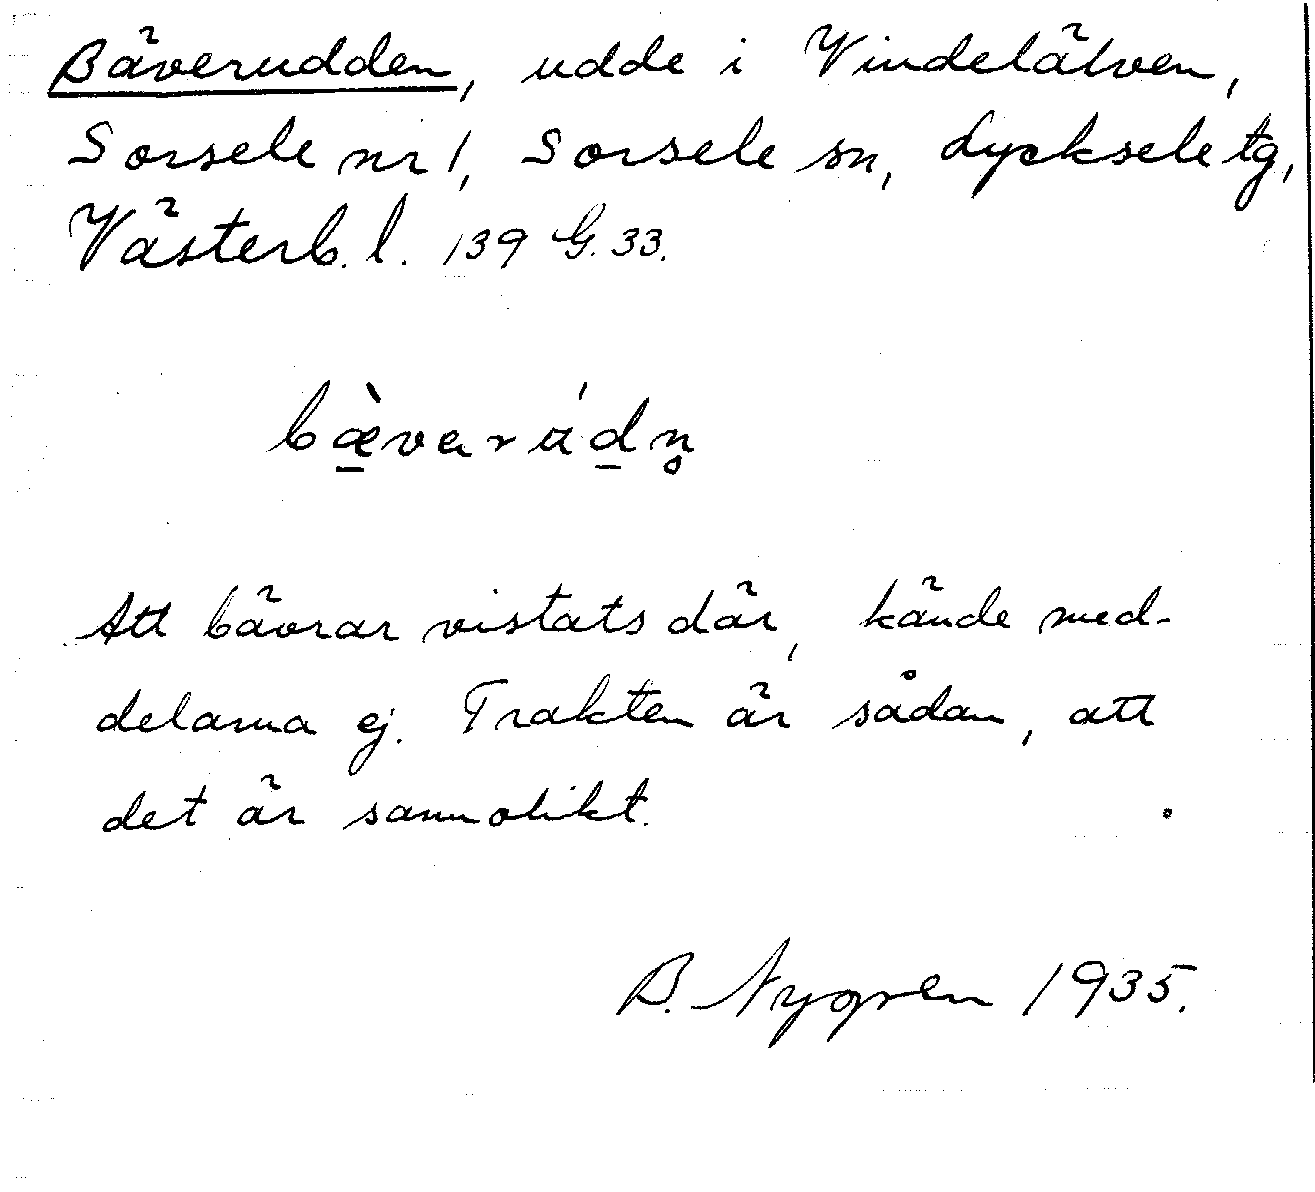 Bäverudden, udde i Vindelälven,
Sorsele nr 1, Sorsele sn, Lycksele tg,
Västerb. l. 139 G. 33.
bæ̱̀varúḏn̥
Att bävrar vistats där, kände med-
delarna ej. Trakten är sådan, att
det är sannolikt.
B. Nygren 1935.